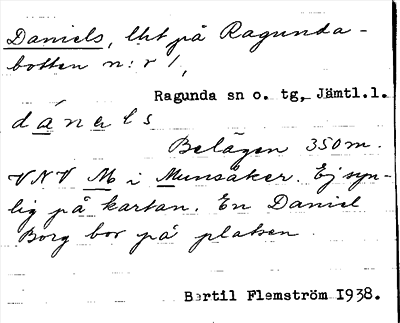 Daniels, lht på Ragunda-
botten n:r 1,
Ragunda sn o. tg, Jämtl.l.
dánəls
Belägen 350 m.
VNV M i Munsåker. Ej syn-
lig på kartan. En Daniel
Borg bor på platsen.
Bertil Flemström 1938.